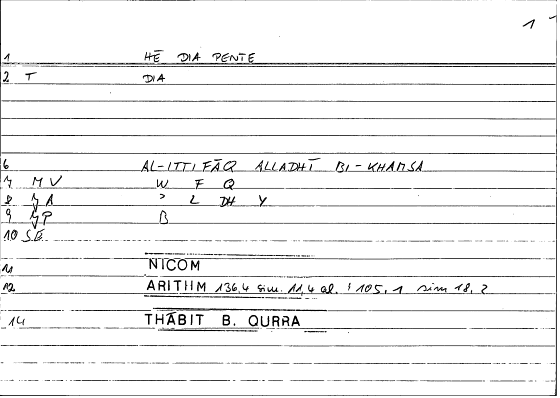 1 -
1 HĒ DIA PENTE
2 T DIA
6 AL-ITTIFĀQ ALLADHĪ BI-KHAMSA
7 M V W F Q
8 A ʾ L DH Y
9 P B
10 SE
11 NICOM
12 ARITHM 136,4 sim. 11,4 al. : 105,1 sim 18,2
14 THĀBIT B. QURRA